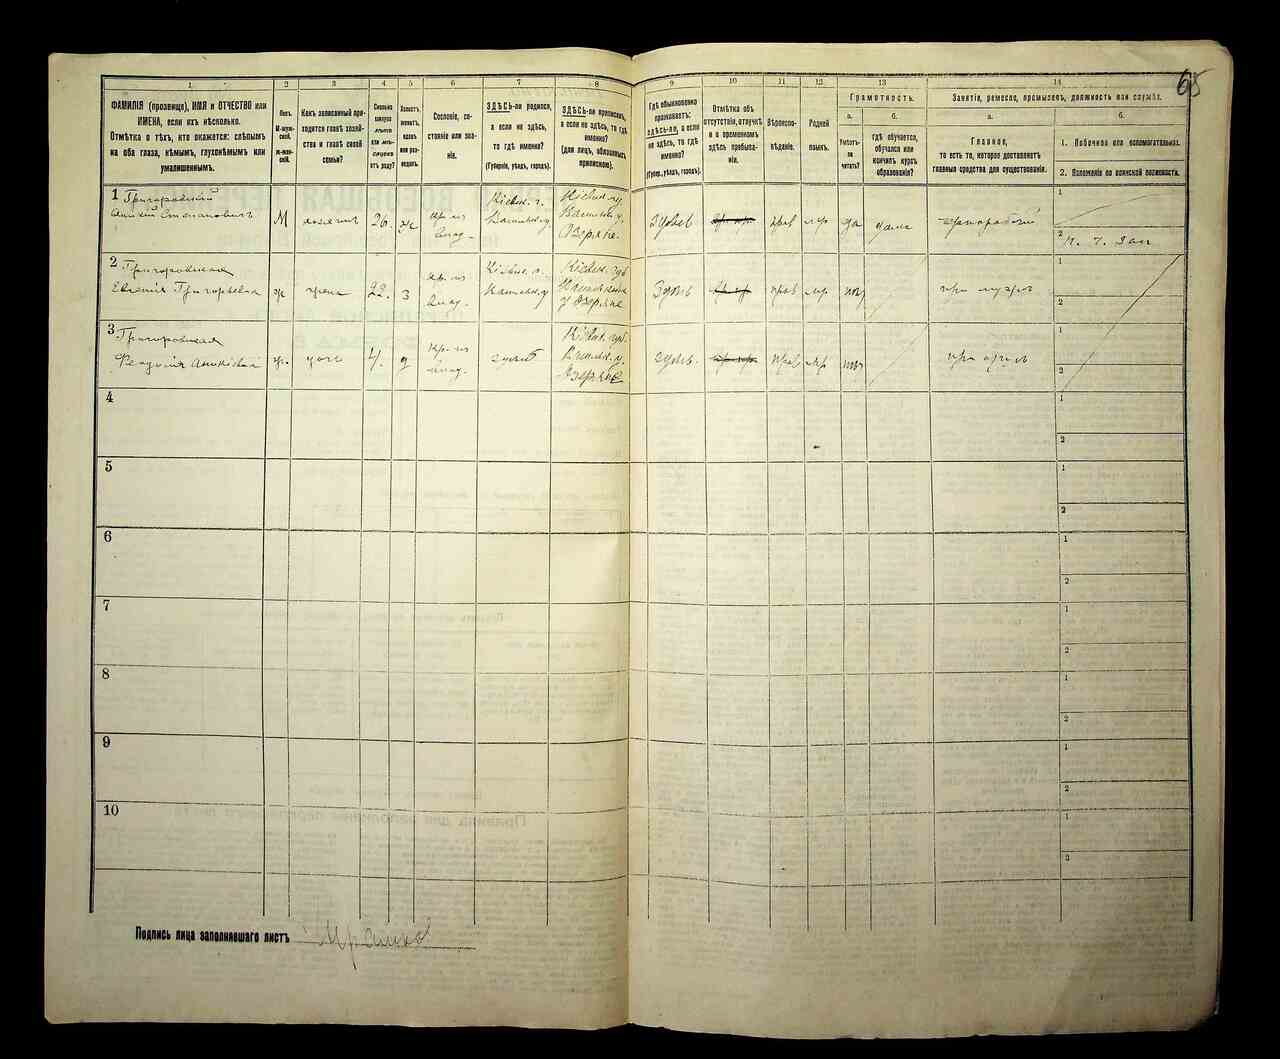 65
1
2
3
4
5
6
7
8
9
10
11
12
13
14
ФАМИЛІЯ (прозвище), ИМЯ и ОТЧЕСТВО или
ИМЕНА, если ихъ нѣсколько.
Отмѣтка о тѣхъ, кто окажется: слѣпымъ
на оба глаза, нѣмымъ, глухонѣмымъ или
умалишеннымъ.
Полъ.
М-муж-
ской.
ж-жен-
скій.
Какъ записанный при-
ходится главѣ хозяй-
ства и главѣ своей
семьи?
Сколько
минуло
лѣтъ
или мѣ-
сяцевъ
отъ роду?
Холостъ,
женатъ,
вдовъ
или раз-
веденъ.
Сословіе, со-
стояніе или зва-
ніе.
ЗДѢСЬ-ли родился,
а если не здѣсь,
то гдѣ именно?
(Губернія, уѣздъ, городъ).
ЗДѢСЬ-ли приписанъ,
а если не здѣсь, то гдѣ
именно?
(для лицъ, обязанныхъ
припискою).
Гдѣ обыкновенно
проживаетъ:
здѣсь-ли, а если
не здѣсь, то гдѣ
именно?
(Губер., уѣздъ, городъ).
Отмѣтка объ
отсутствіи, отлучкѣ
и о временномъ
здѣсь пребыва-
ніи.
Вѣроиспо-
вѣданіе.
Родной
языкъ.
Грамотность.
а.
б.
Умѣетъ-
ли
читать?
гдѣ обучается,
обучался или
кончилъ курсъ
образованія?
Занятіе, ремесло, промыселъ, должность или служба.
а.
б.
Главное,
то есть то, которое доставляетъ
главныя средства для существованія.
1. Побочное или вспомогательное.
2. Положеніе по воинской повинности.
1 Григоровскій
Степановичъ
М
хозяинъ
26.
ж
кр. из
влад.
Кіевск. г.
Васильк. у.
Кіевск. гу.
Васильк. у.
Озеряне.
Здѣсь
прав
мр
да
дома
1
2
2 Григоровская
Евгенія Григорьевна
ж
жена
22.
З
кр. из
влад.
Кіевск. г.
Васильк. у
Кіевск. губ
у Озеряне
Здѣсь
прав
мр
нѣт
при мужѣ
1
2
3 Григоровская
ж.
дочь
4.
д
кр. из
влад.
здѣсь
Кіевск. губ.
Васильк. у.
Озеряне
здѣсь.
прав
мр
нѣт
при отцѣ
1
2
4
1
2
5
1
2
6
1
2
7
1
2
8
1
2
9
1
2
10
1
2
Подпись лица заполнявшаго листъ